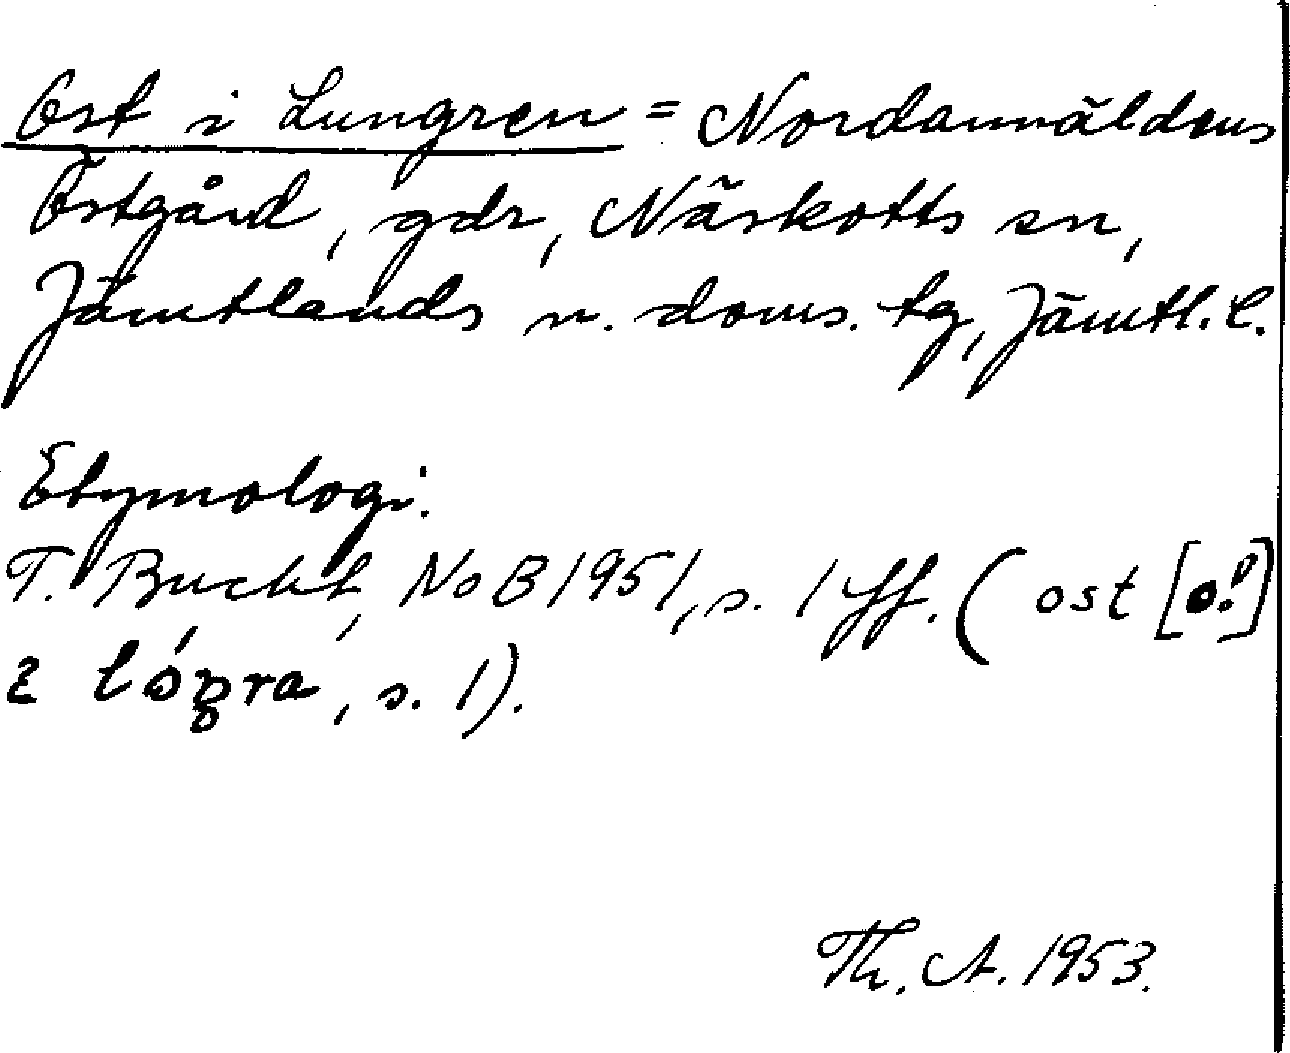 Ost i Lungren = Nordannäldens
Östgård, gdr, Näskotts sn,
Jämtlands n. doms. tg, Jämtl. l.
Etymologi:
T. Bucht, NoB 1951, s. 1 ff. (ost [o!]
lóŋra, s. 1).
Th. A. 1953.